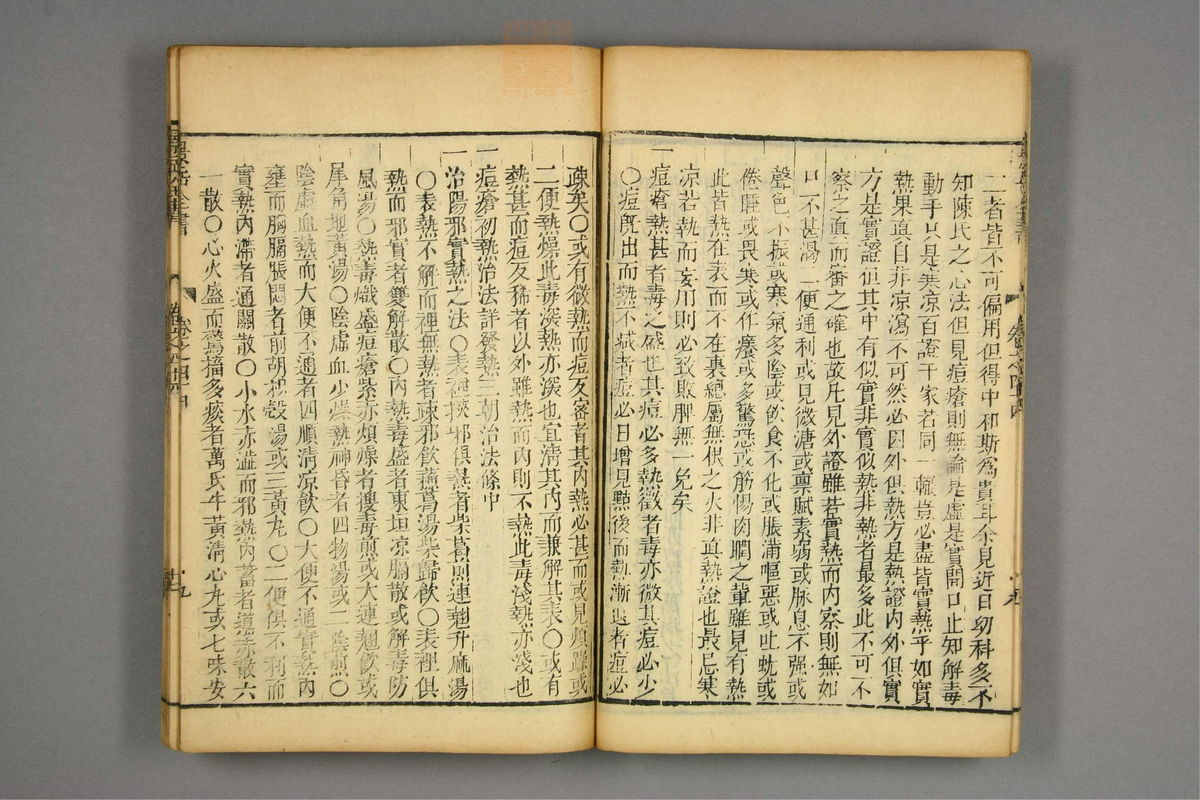 二者皆不可偏用但得中和斯為貴耳余見近日幼科多不
知陳氏之心法但見痘瘡則無論是虛是實開口止知解毒
動手只是寒涼百證千家若同一轍豈必盡皆實熱乎如實
熱果真自非凉瀉不可然必因外俱熱方是熱證內外俱實
方是實證但其中有似實非實似熱非熱者最多此不可不
察之真而審之確也故凡見外證雖若實熱而內察則無如
口不甚渴二便通利或見微溏或禀賦素弱或脉息不强或
聲色不振或寒氣多陰或飲食不化或脹滿嘔惡或吐蚘或
倦睡或畏寒或作癢或多驚恐或筋惕肉瞤之葷雖見有熱
此皆熱在表而不在裏總屬無根之火非真熱證也最忌寒
凉若執而妄用則必致敗脾無一免矣
一痘瘡熱甚者毒之盛也其痘必多熱微者毒亦微其痘必少
〇痘旣出而熱不减者痘必日增見點後而熱漸退者痘必
疎矣〇或有微熱而痘反密者其內熱必甚而或見煩躁或
二便熱燥此毒深熱亦深也宜清其內而兼解其表〇或有
熱甚而痘反稀者以外雖熱而內則不熱此毒淺熱亦淺也
一痘瘡初熱治法詳發熱三朝治法條中
一治陽邪實熱之法〇表裡挾邪俱熱者柴葛煎連翹升麻湯
〇表熱不解而裡無熱者疎邪飲蘇葛湯柴歸飲〇表裡俱
熱而邪實者雙解散〇內熱毒盛者東垣凉膈散或解毒防
風湯〇熱毒熾盛痘瘡紫赤煩燥者搜毒煎或大連翹飲或
犀角地黄湯〇陰虛血少柴熱神昏者四物湯或二陰煎〇
陰虛血熱而大便不通者四順清凉飲〇大便不通實熱內
壅而胸膈脹悶者前胡枳殼湯或三黃丸〇二便俱不利而
實熱內滯者通關散〇小水赤澁而邪熱內蓄者導赤散六
一散〇心火盛而驚搐多痰者萬氏牛黃清心丸或七味安